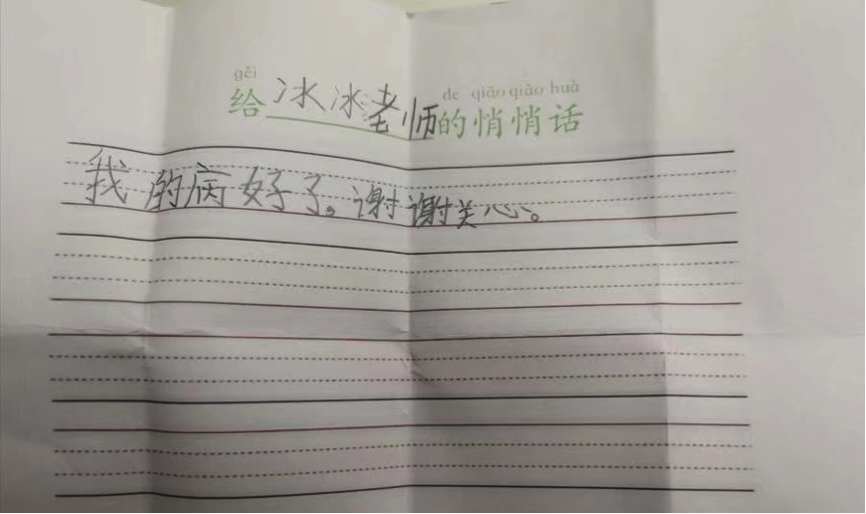 gěi de qiāo qiāo huà
给冰冰老师的悄悄话
我的病好了。谢谢关心。